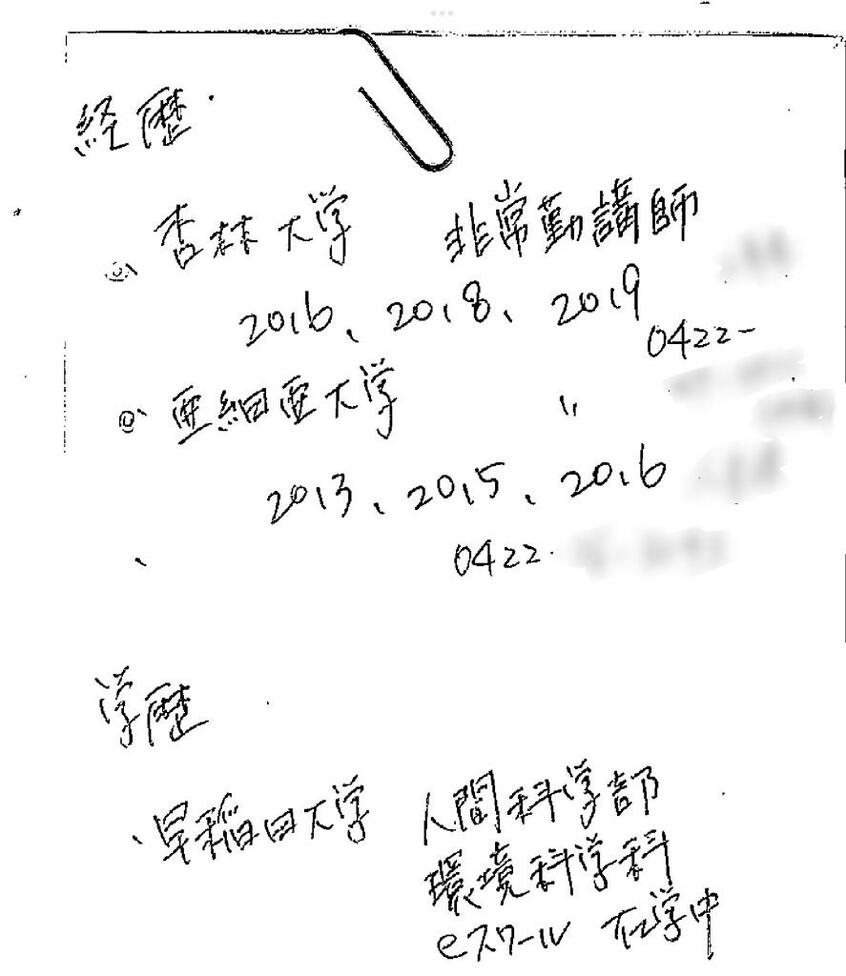 経歴
◎、杏林大学 非常勤講師
2016、2018、2019
0422-
◎、亜細亜大学 〃
2013、2015、2016
0422-
学歴
、早稲田大学 人間科学部
環境科学科
eスクール 在学中